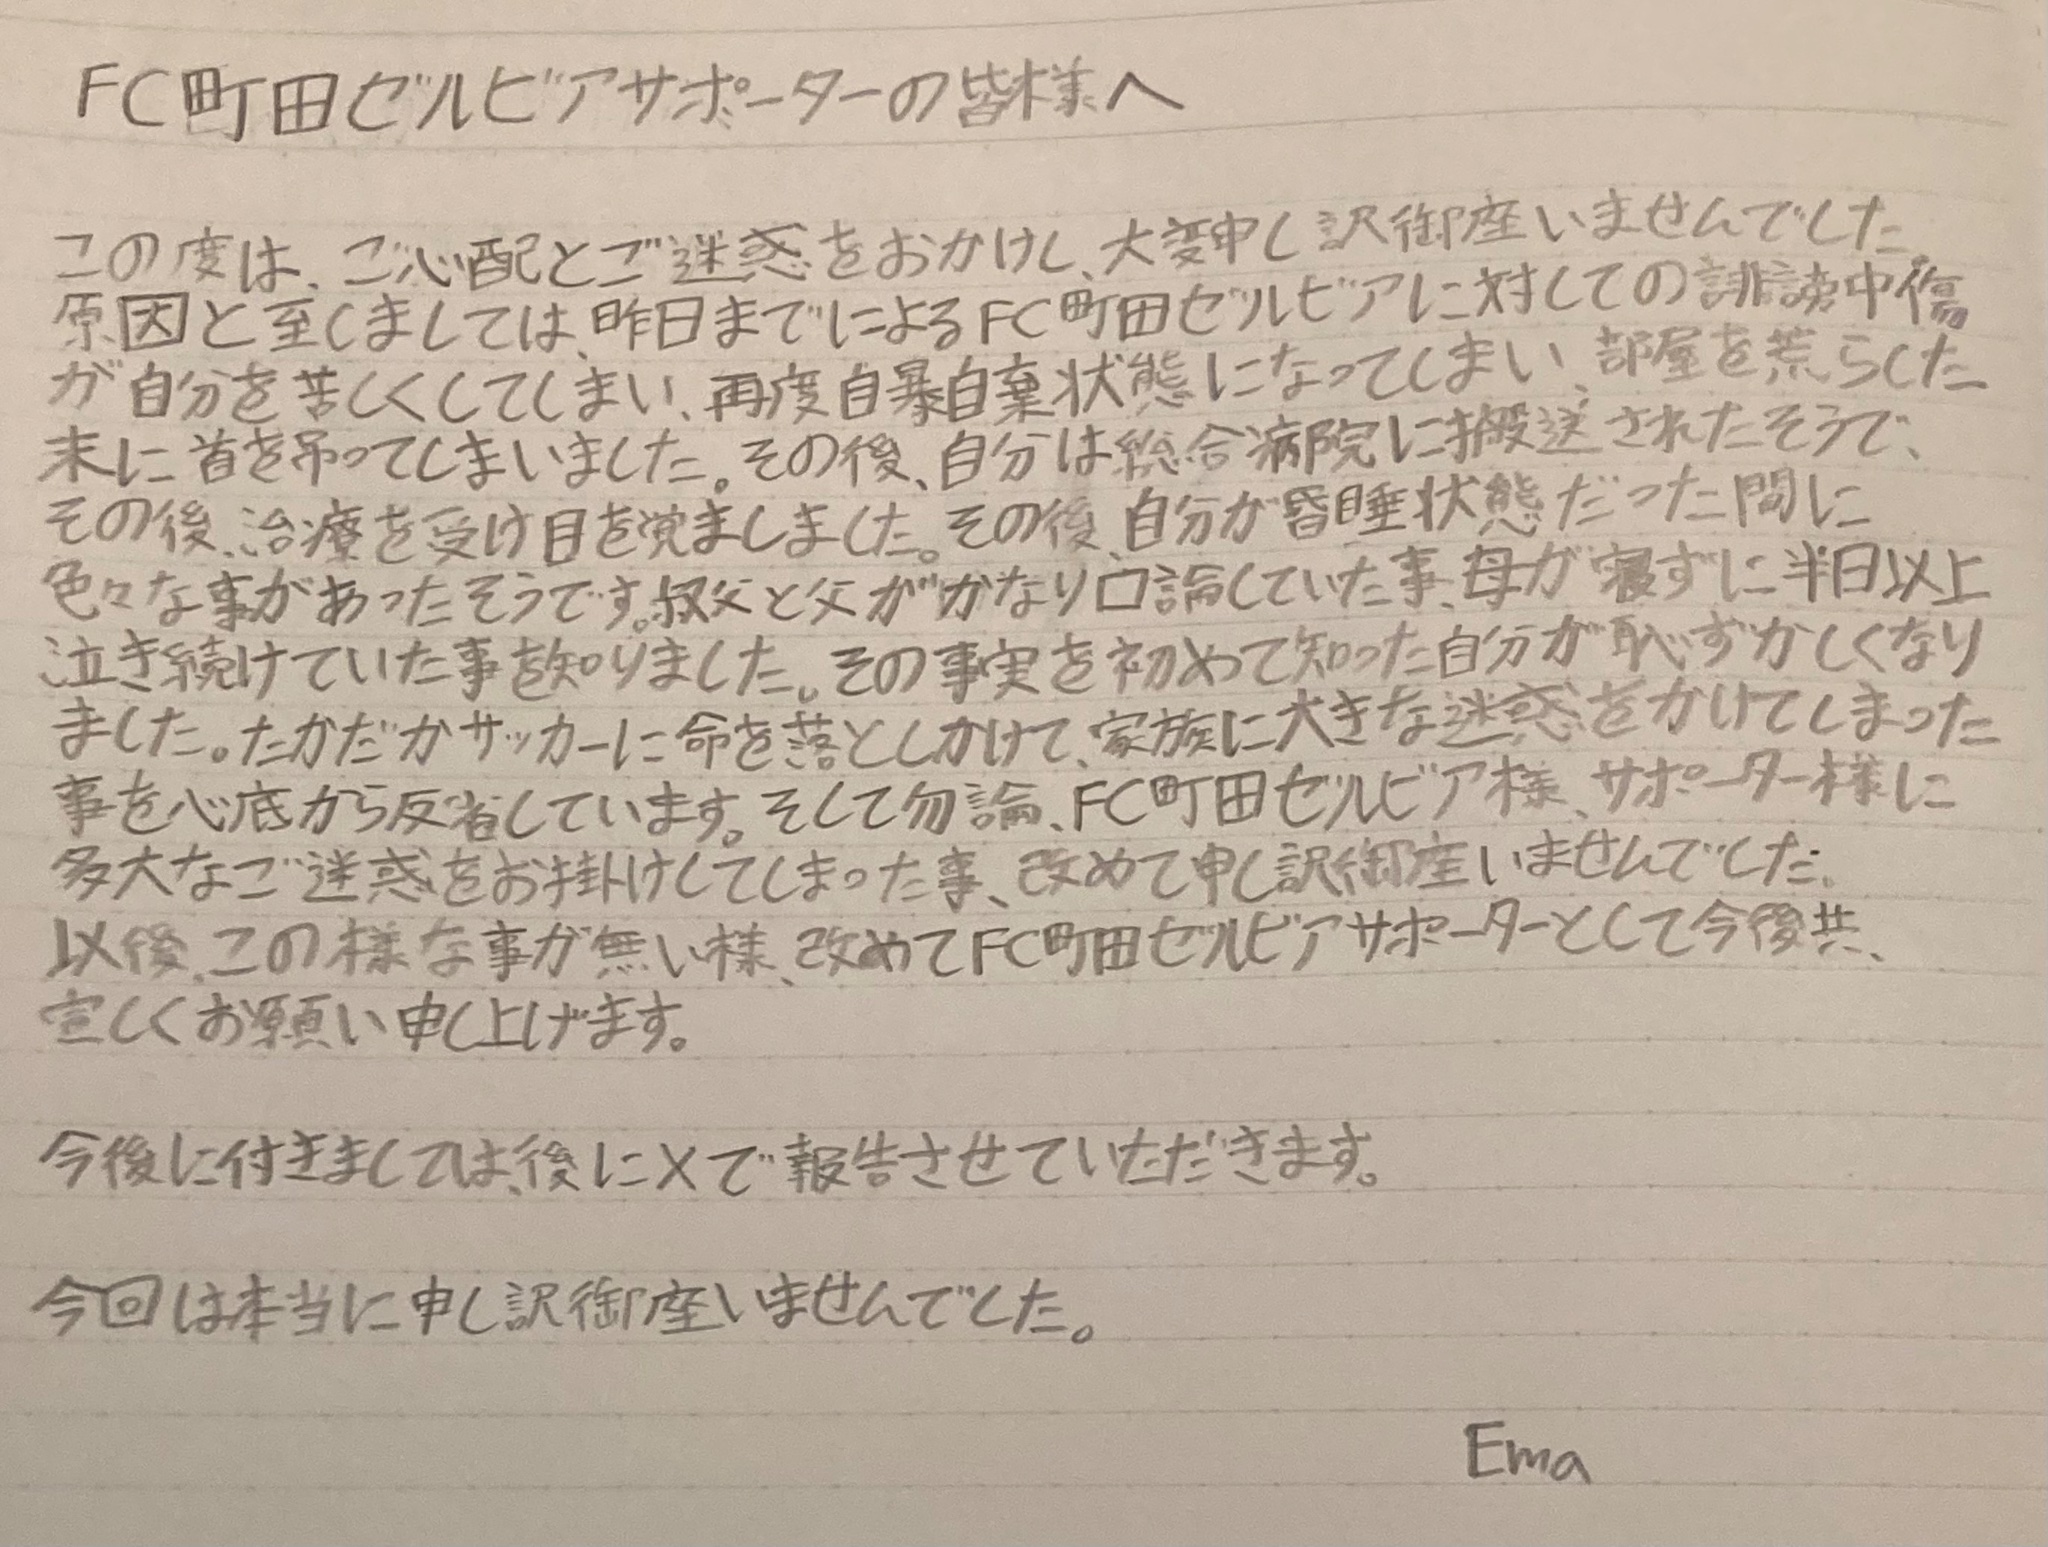 FC町田ゼルビアサポーターの皆様へ
この度は、ご心配とご迷惑をおかけし、大変申し訳御座いませんでした。
原因と至しましては、昨日までによるFC町田ゼルビアに対しての誹謗中傷
が自分を苦しくしてしまい、再度自暴自棄状態になってしまい、部屋を荒らした
末に首を吊ってしまいました。その後、自分は総合病院に搬送されたそうで、
その後、治療を受け目を覚ましました。その後、自分が昏睡状態だった間に
色々な事があったそうです。叔父と父がかなり口論していた事、母が寝ずに半日以上
泣き続けていた事を知りました。その事実を初めて知った自分が恥ずかしくなり
ました。たかだかサッカーに命を落としかけて、家族に大きな迷惑をかけてしまった
事を心底から反省しています。そして勿論、FC町田ゼルビア様、サポーター様に
多大なご迷惑をお掛けしてしまった事、改めて申し訳御座いませんでした。
以後、この様な事が無い様、改めてFC町田ゼルビアサポーターとして今後共、
宜しくお願い申し上げます。
今後に付きましては、後にXで報告させていただきます。
今回は本当に申し訳御座いませんでした。
Ema